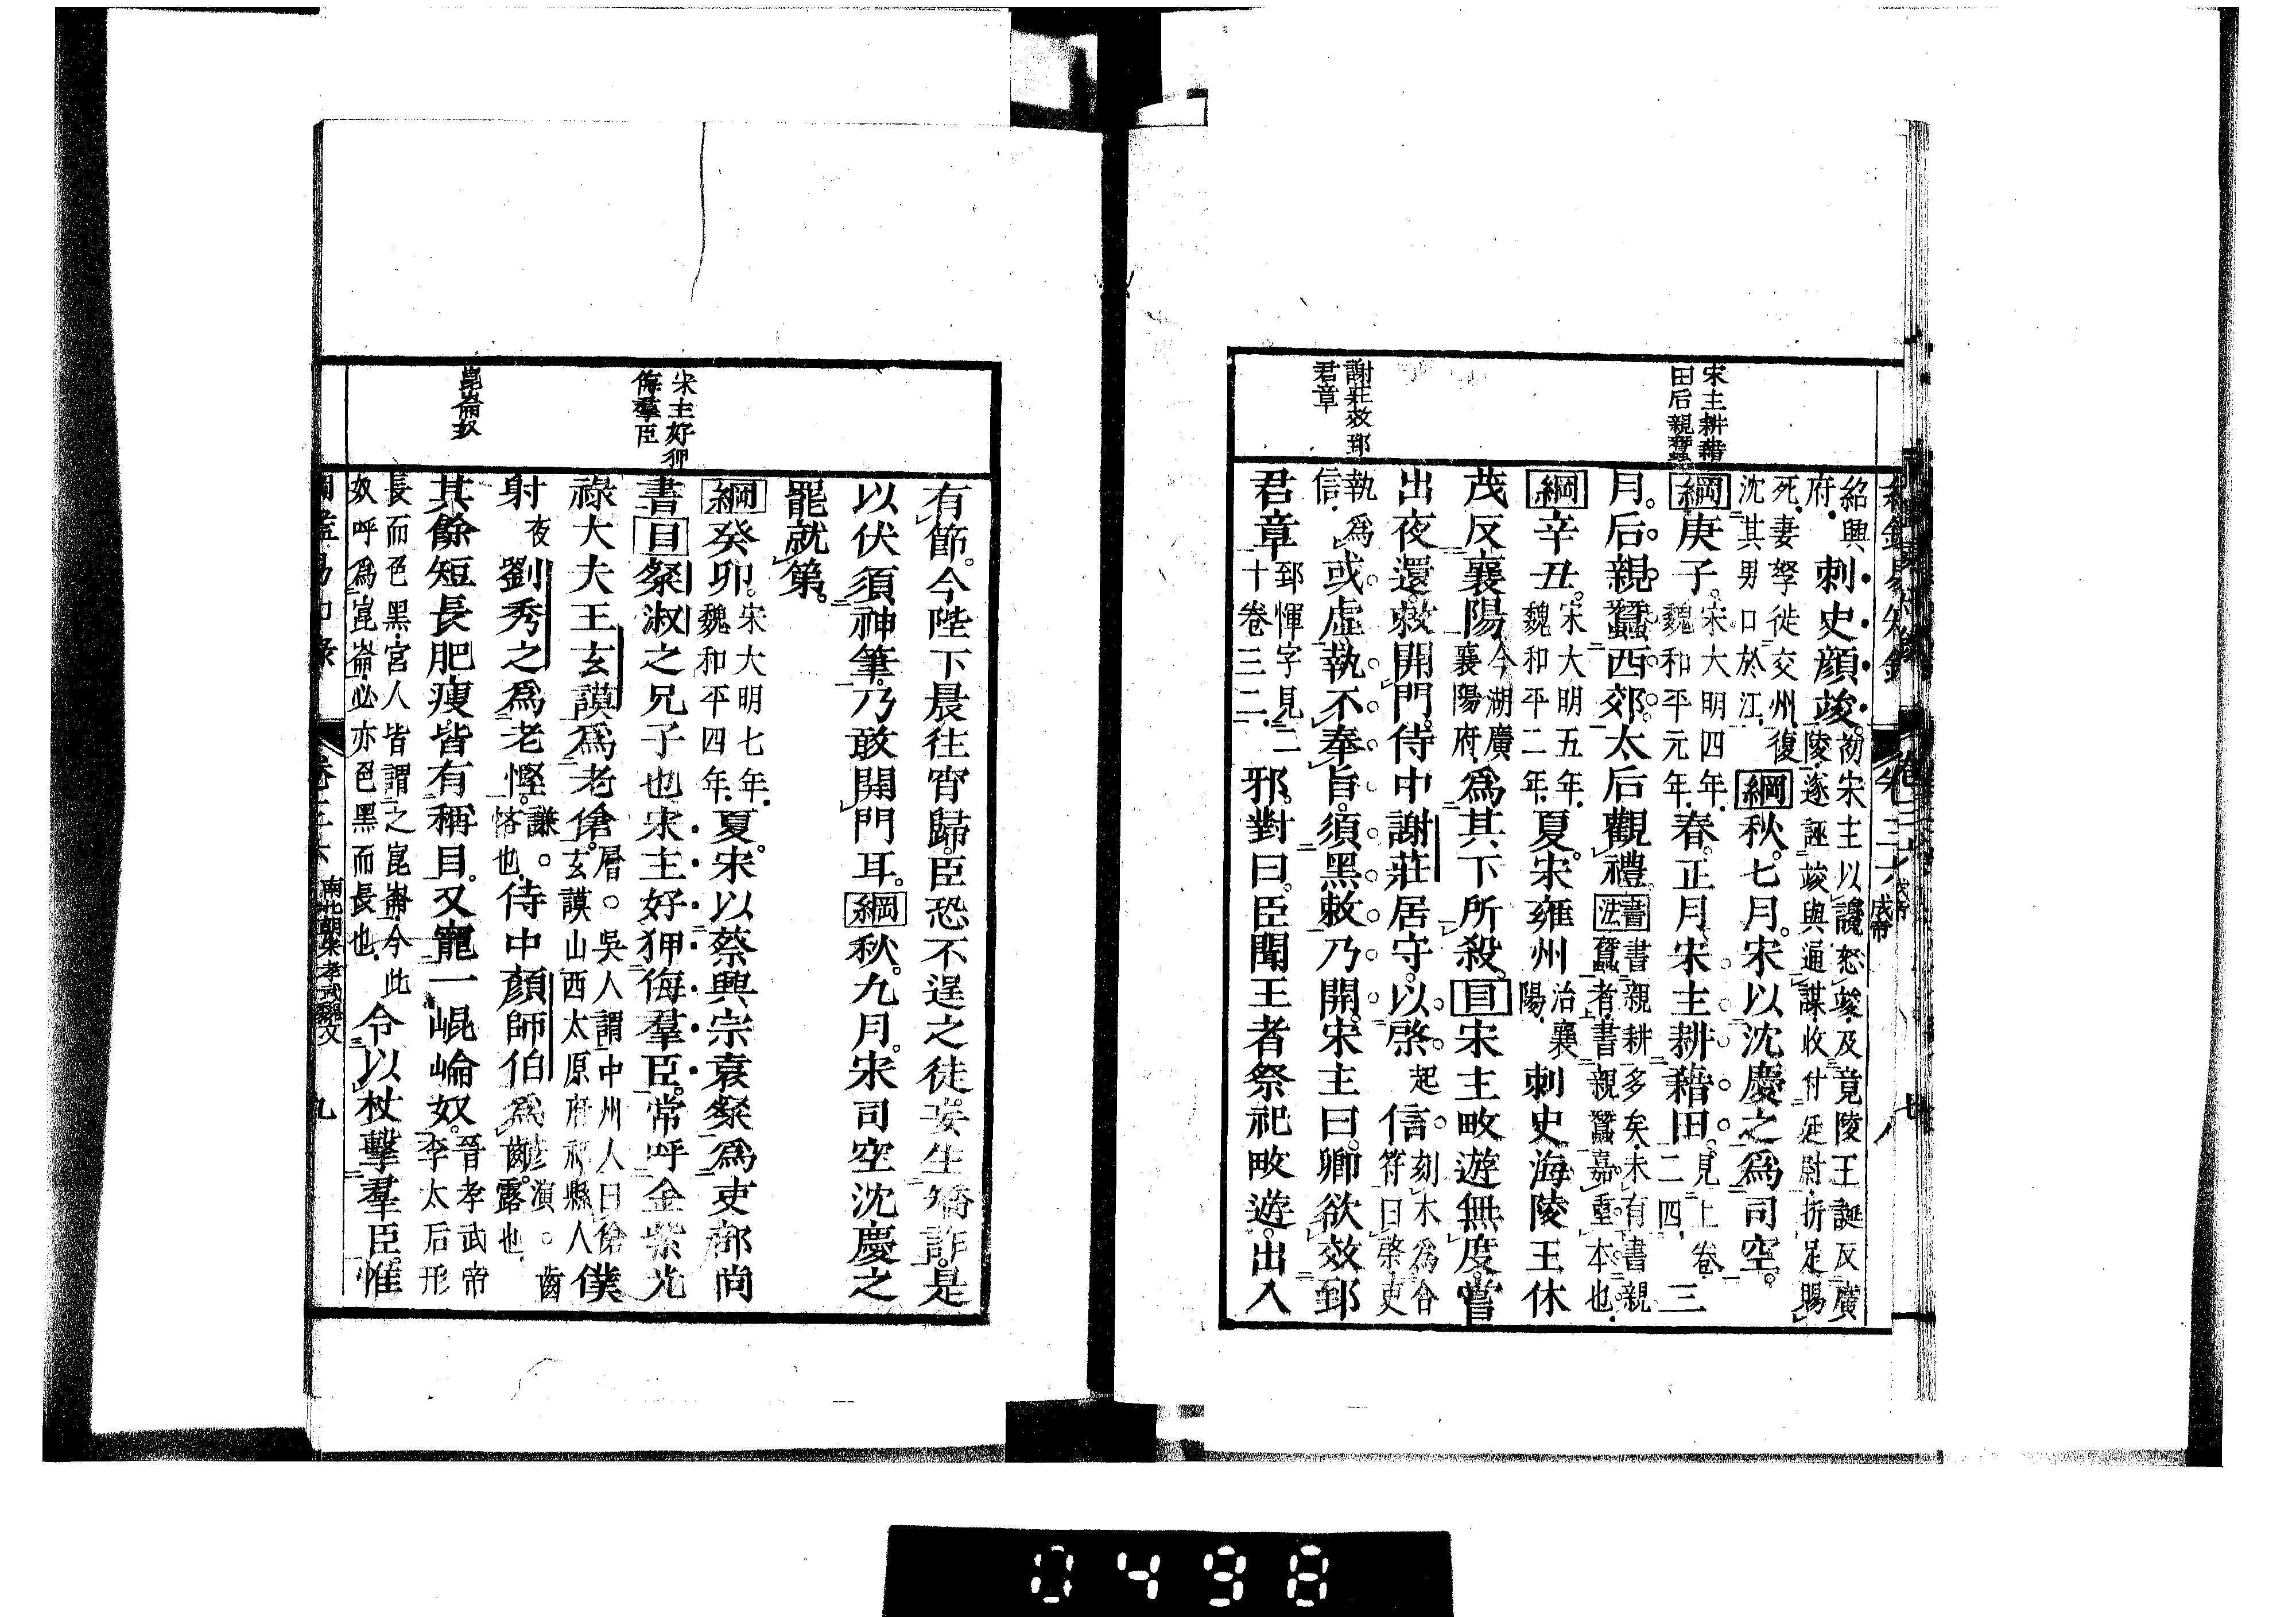 宋主耕藉
田后親蠶
謝莊效郅
君章
紹興府刺史顏竣初宋主以讒怒竣及竟陵王誕反廣
陵遂誣竣與通謀收付廷尉折足賜
死妻孥徙交州復
沈其男口於江綱秋七月宋以沈慶之爲司空
綱庚子宋大明四年
魏和平元年春正月宋主耕藉田見上卷
二四三
月后親蠶西郊太后觀禮書法書親耕多矣未有書親
蠶者書親蠶嘉重本也
綱辛丑宋大明五年
魏和平二年夏宋雍州治襄
陽刺史海陵王休
茂反襄陽今湖廣
襄陽府爲其下所殺目宋主畋遊無度嘗
出夜還敕開門侍中謝莊居守以棨起信刻木爲合
符曰棨吏
執爲
信或虛執不奉旨須墨敕乃開宋主曰卿欲效郅
君章郅惲字見二
十卷三二邪對曰臣聞王者祭祀畋遊出入
宋主好狎
侮羣臣
崑崙奴
有節今陛下晨往宵歸臣恐不逞之徒妄生矯詐是
以伏須神筆乃敢開門耳綱秋九月宋司空沈慶之
罷就第
綱癸卯宋大明七年
魏和平四年夏宋以蔡興宗袁粲爲吏部尚
書目粲淑之兄子也宋主好狎侮羣臣常呼金紫光
祿大夫王玄謨爲老傖層○吳人謂中州人曰傖
玄謨山西太原府祁縣人僕
射夜劉秀之爲老慳謙○
悋也侍中顏師伯爲齴彦演○齒
露也
其餘短長肥瘦皆有稱目又寵一崐崘奴晉孝武帝
李太后形
長而色黑宮人皆謂之崑崙今此
奴呼爲崑崙必亦色黑而長也令以杖擊羣臣惟
卷三六
南北朝宋孝武魏文
九